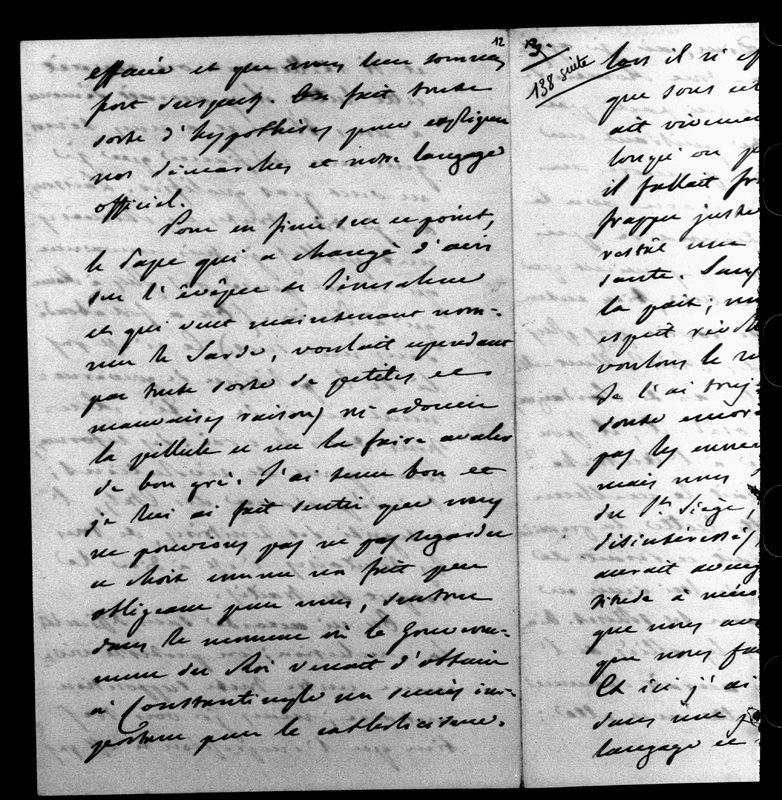 12
effacée et que nous leur sommes
fort suspects. On fait toute
sorte d'hypothèses pour expliquer
nos démarches et notre langage
officiel.
Pour en finir sur ce point,
le Pape qui a changé d'avis
sur l'évêque de Jérusalem
et qui veut maintenant nom-
mer le Sarde, voulait cependant
par toute sorte de petites et
mauvaises raisons m'adoucir
la pillule et me la faire avaler
de bon gré. J'ai tenu bon et
je lui ai fait sentir que nous
ne pouvions pas ne pas regarder
ce choix comme un fait peu
obligeant pour nous, surtout
dans le moment où le Gouverne-
ment du Roi venait d'obtenir
à Constantinople un succès im-
portant pour le catholicisme.
3.
138 suite
lors il n'
que sous
ait viveme
longé ou
il fallait
frapper juste
restât une
sante.
la paix;
esprit
voulons le
Je l'ai touj
doute encor
pas les enne
mais nous
du St Siège,
désintéressé
aurait
titude à
que nous av
que nous fa
Et ici j'ai
dans une
langage